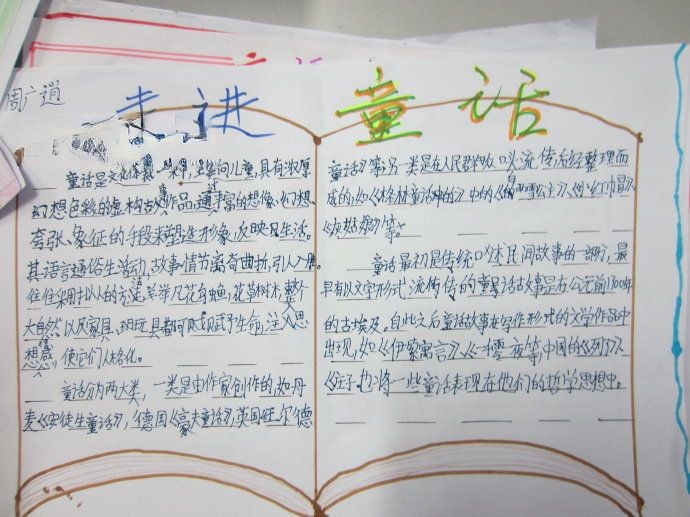 周广逍
走进 童话
童话是文化体裁一种，是面向儿童，具有浓厚
幻想色彩的虚构故事作品，通过丰富的想像、幻想、
夸张、象征的手段来塑造形象，反映生活。
其语言通俗生活动，故事情节离奇曲折，引人入胜。
往往采用拟人的方法，举凡花鸟虫鱼，花草树木，整个
大自然以及家具、玩具都可赋予生命，注入思
想感，使它们人格化。
童话分为两大类，一类是由作家创作的，如丹
麦《安徒生童话》，德国《豪夫童话》，英国旺尔德
童话》等；另一类是在人民群收口头流传后经整理而
成的，如《格林童话》中的《白雪公主》、《小红帽》、
《灰姑娘》等。
童话最初是传统口述民间故事的一部分，最
早有以文字形式流传的童话故事是在公元前1700年
的古埃及。自此之后童话故事在写作形式的文学作品中
出现，如《伊索寓言》《一零夜等》中国的《列子》
《庄子》也将一些童话表现在他们的哲学思想中。